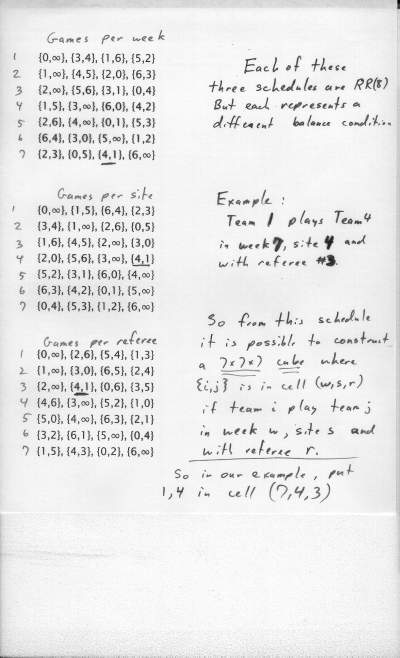 Games per week
1 {0,∞}, {3,4}, {1,6}, {5,2}
2 {1,∞}, {4,5}, {2,0}, {6,3}
3 {2,∞}, {5,6}, {3,1}, {0,4}
4 {1,5}, {3,∞}, {6,0}, {4,2}
5 {2,6}, {4,∞}, {0,1}, {5,3}
6 {6,4}, {3,0}, {5,∞}, {1,2}
7 {2,3}, {0,5}, {4,1}, {6,∞}
Each of these
three schedules are RR(8)
But each represents a
different balance condition
Games per site
1 {0,∞}, {1,5}, {6,4}, {2,3}
2 {3,4}, {1,∞}, {2,6}, {0,5}
3 {1,6}, {4,5}, {2,∞}, {3,0}
4 {2,0}, {5,6}, {3,∞}, {4,1}
5 {5,2}, {3,1}, {6,0}, {4,∞}
6 {6,3}, {4,2}, {0,1}, {5,∞}
7 {0,4}, {5,3}, {1,2}, {6,∞}
Example :
Team 1 plays Team 4
in week 7, site 4 and
with referee #3.
Games per referee
1 {0,∞}, {2,6}, {5,4}, {1,3}
2 {1,∞}, {3,0}, {6,5}, {2,4}
3 {2,∞}, {4,1}, {0,6}, {3,5}
4 {4,6}, {3,∞}, {5,2}, {1,0}
5 {5,0}, {4,∞}, {6,3}, {2,1}
6 {3,2}, {6,1}, {5,∞}, {0,4}
7 {1,5}, {4,3}, {0,2}, {6,∞}
So from this schedule
it is possible to construct
a 7x7x7 cube where
{i,j} is in cell (w,s,r)
if team i play team j
in week w, site s and
with referee r.
So in our example, put
1,4 in cell (7,4,3)